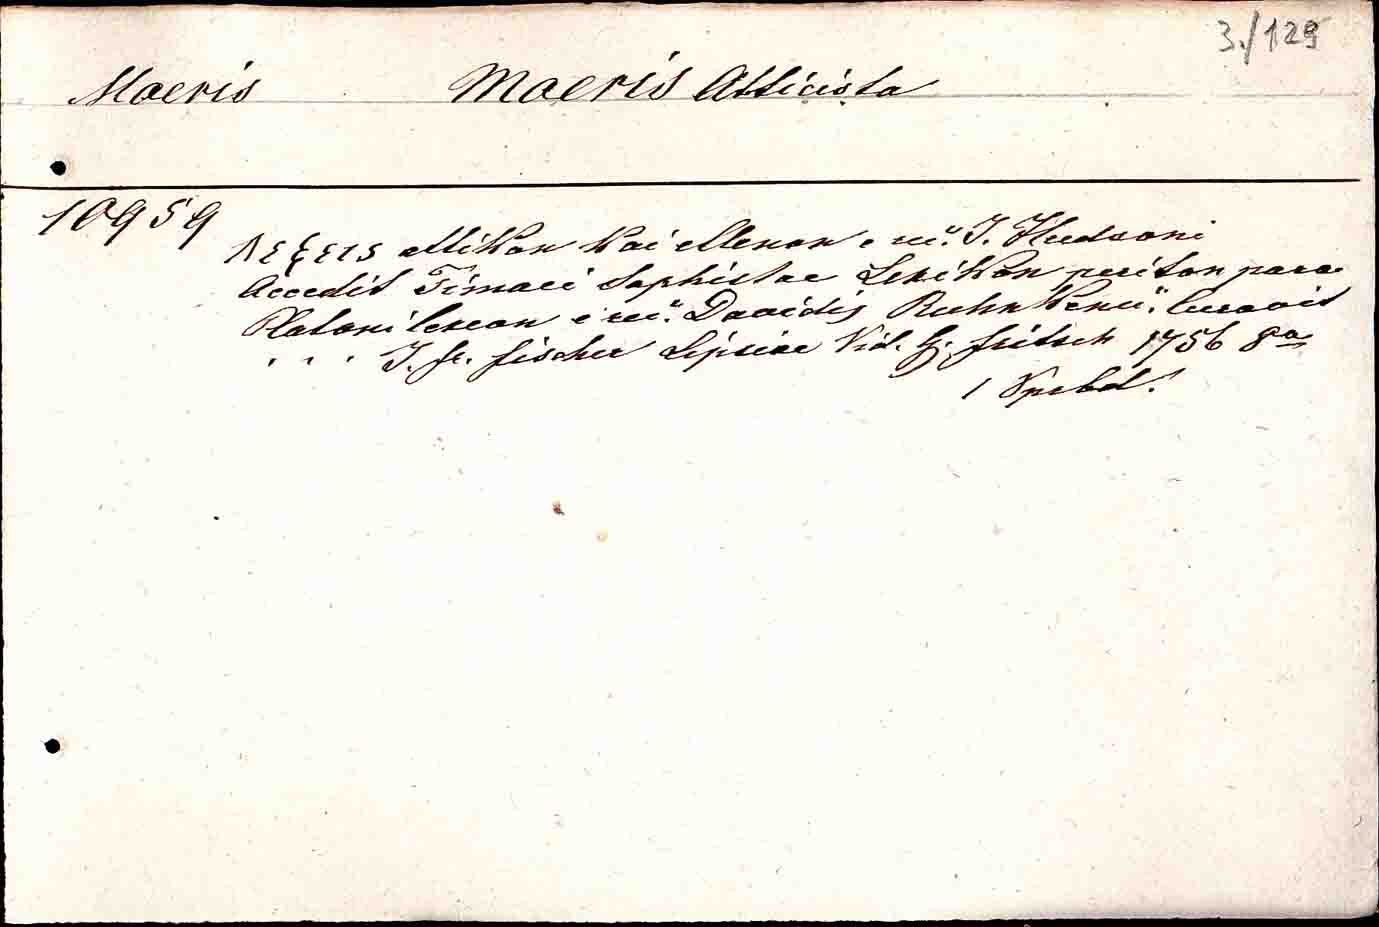 3./129
Moeris Moeris Atticista
10959
λεξεις attikon kai ellenon e rec. J. Hudsoni
Accedit Timaei Sophistae Lexikon peri ton para
Platoni lexeon e rec. Davidis Ruhnkenii. Curavit
. . . J. fr. fischer Lipsiae Vid. G. fritsch 1756 8a
1 Vprbd.